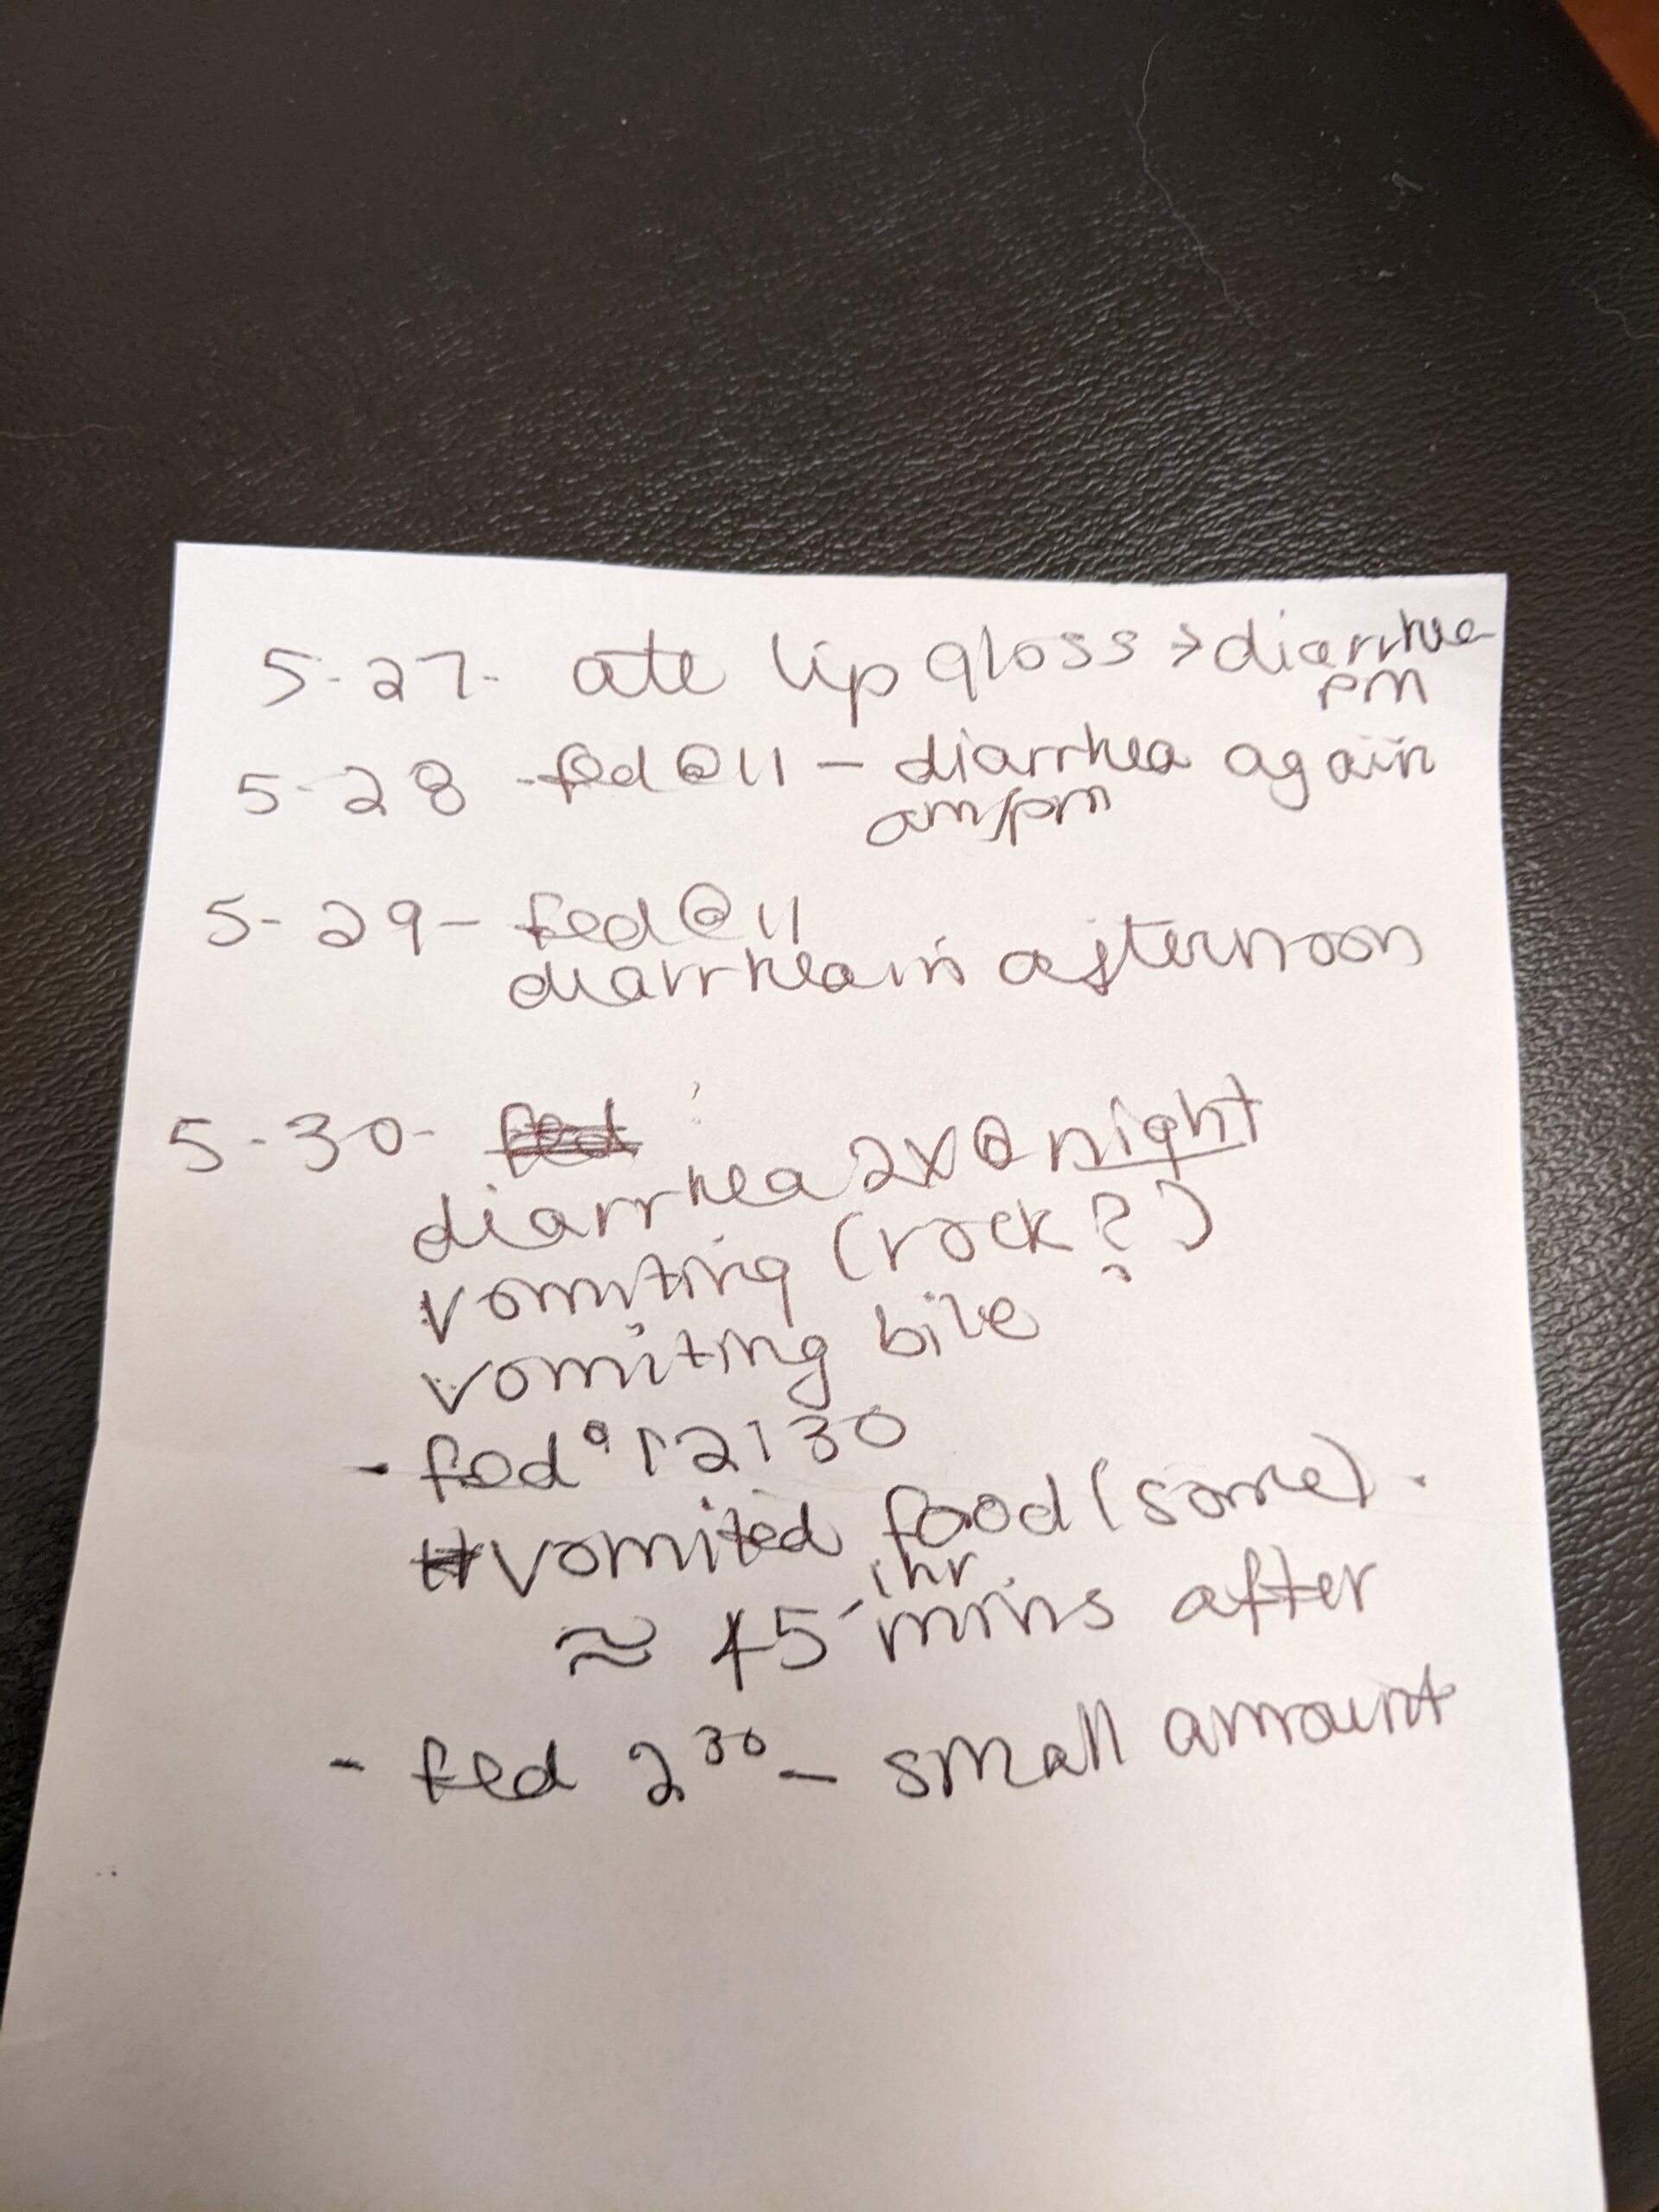 5-27- ate lip gloss → diarrhea
pm
5-28 -fed @ 11 - diarrhea again
am/pm
5-29- fed @ 11
diarrhea in afternoon
5-30- fed
diarrhea 2x @ night
vomiting (rock?)
vomiting bile
- fed @ 12:30
vomited food (some).
1hr
≈ 45 mins after
- fed 2 30 - small amount